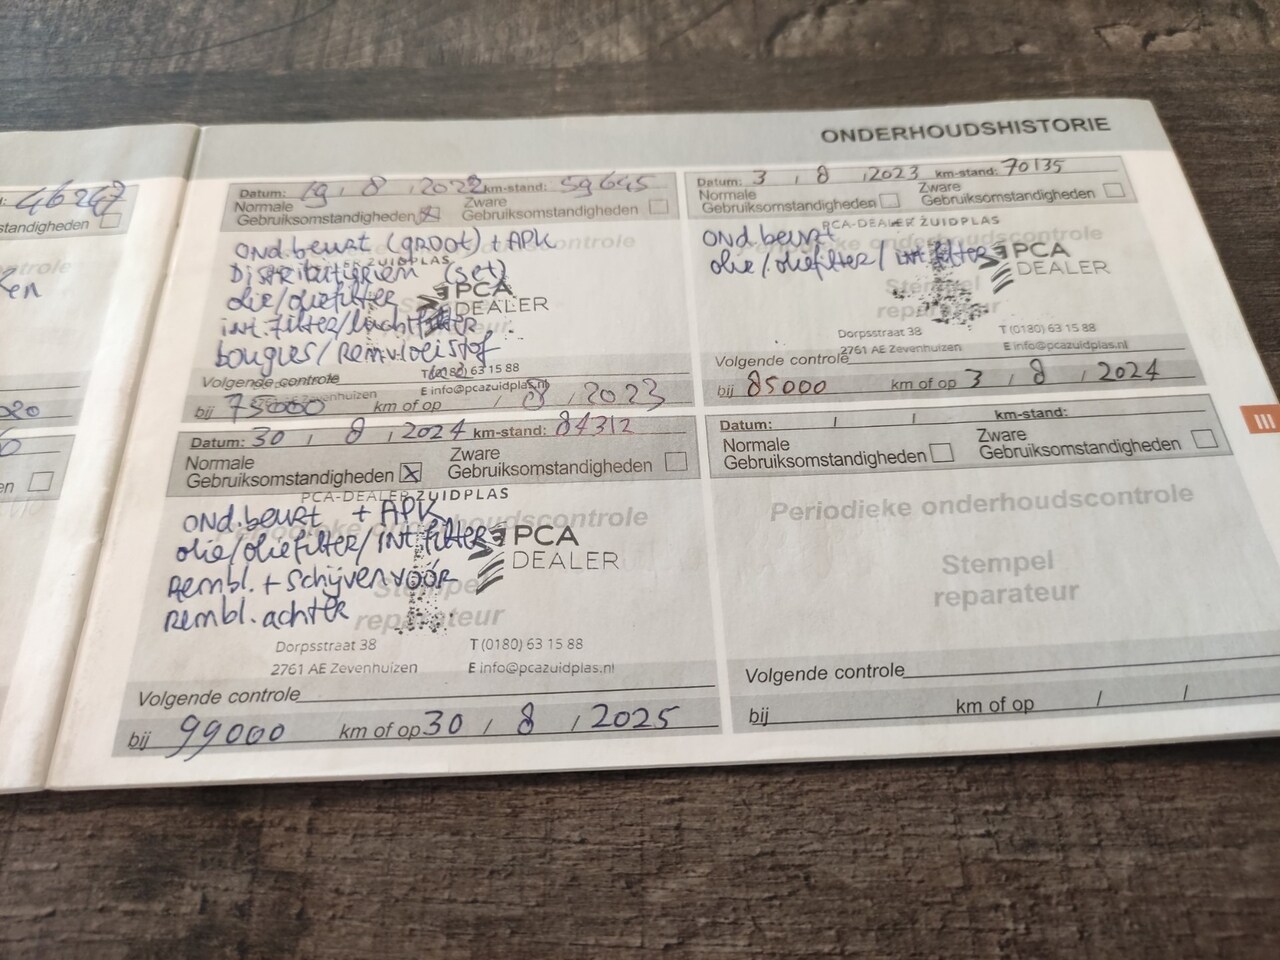 ONDERHOUDSHISTORIE
46247
standigheden
Datum: 19 / 8 / 2022 km-stand: 59645
Normale
Gebruiksomstandigheden
Zware
Gebruiksomstandigheden
Ond.beurt (groot) + APK
Distributieriem (set)
olie/oliefilter
int.filter/luchtfilter
bougies/remvloeistof
PCA
DEALER
T (0180) 63 15 88
E info@pcazuidplas.nl
Volgende controle
bij 75000 km of op / 8 / 2023
Datum: 3 / 8 / 2023 km-stand: 70135
Normale
Gebruiksomstandigheden
Zware
Gebruiksomstandigheden
PCA-DEALER ZUIDPLAS
Ond.beurt
olie/oliefilter/int.filter
PCA
DEALER
Stempel
reparateur
Dorpsstraat 38 T (0180) 63 15 88
2761 AE Zevenhuizen E info@pcazuidplas.nl
Volgende controle
bij 85000 km of op 3 / 8 / 2024
Datum: 30 / 8 / 2024 km-stand: 84312
Normale
Gebruiksomstandigheden
Zware
Gebruiksomstandigheden
PCA-DEALER ZUIDPLAS
Ond.beurt + APK
Periodieke onderhoudscontrole
olie/oliefilter/int.filter
PCA
DEALER
Rembl. + schijven vóór
Stempel
Rembl. achter
reparateur
Dorpsstraat 38 T (0180) 63 15 88
2761 AE Zevenhuizen E info@pcazuidplas.nl
Volgende controle
bij 99000 km of op 30 / 8 / 2025
Datum: / / km-stand:
Normale
Gebruiksomstandigheden
Zware
Gebruiksomstandigheden
Periodieke onderhoudscontrole
Stempel
reparateur
Volgende controle
bij km of op / /
III